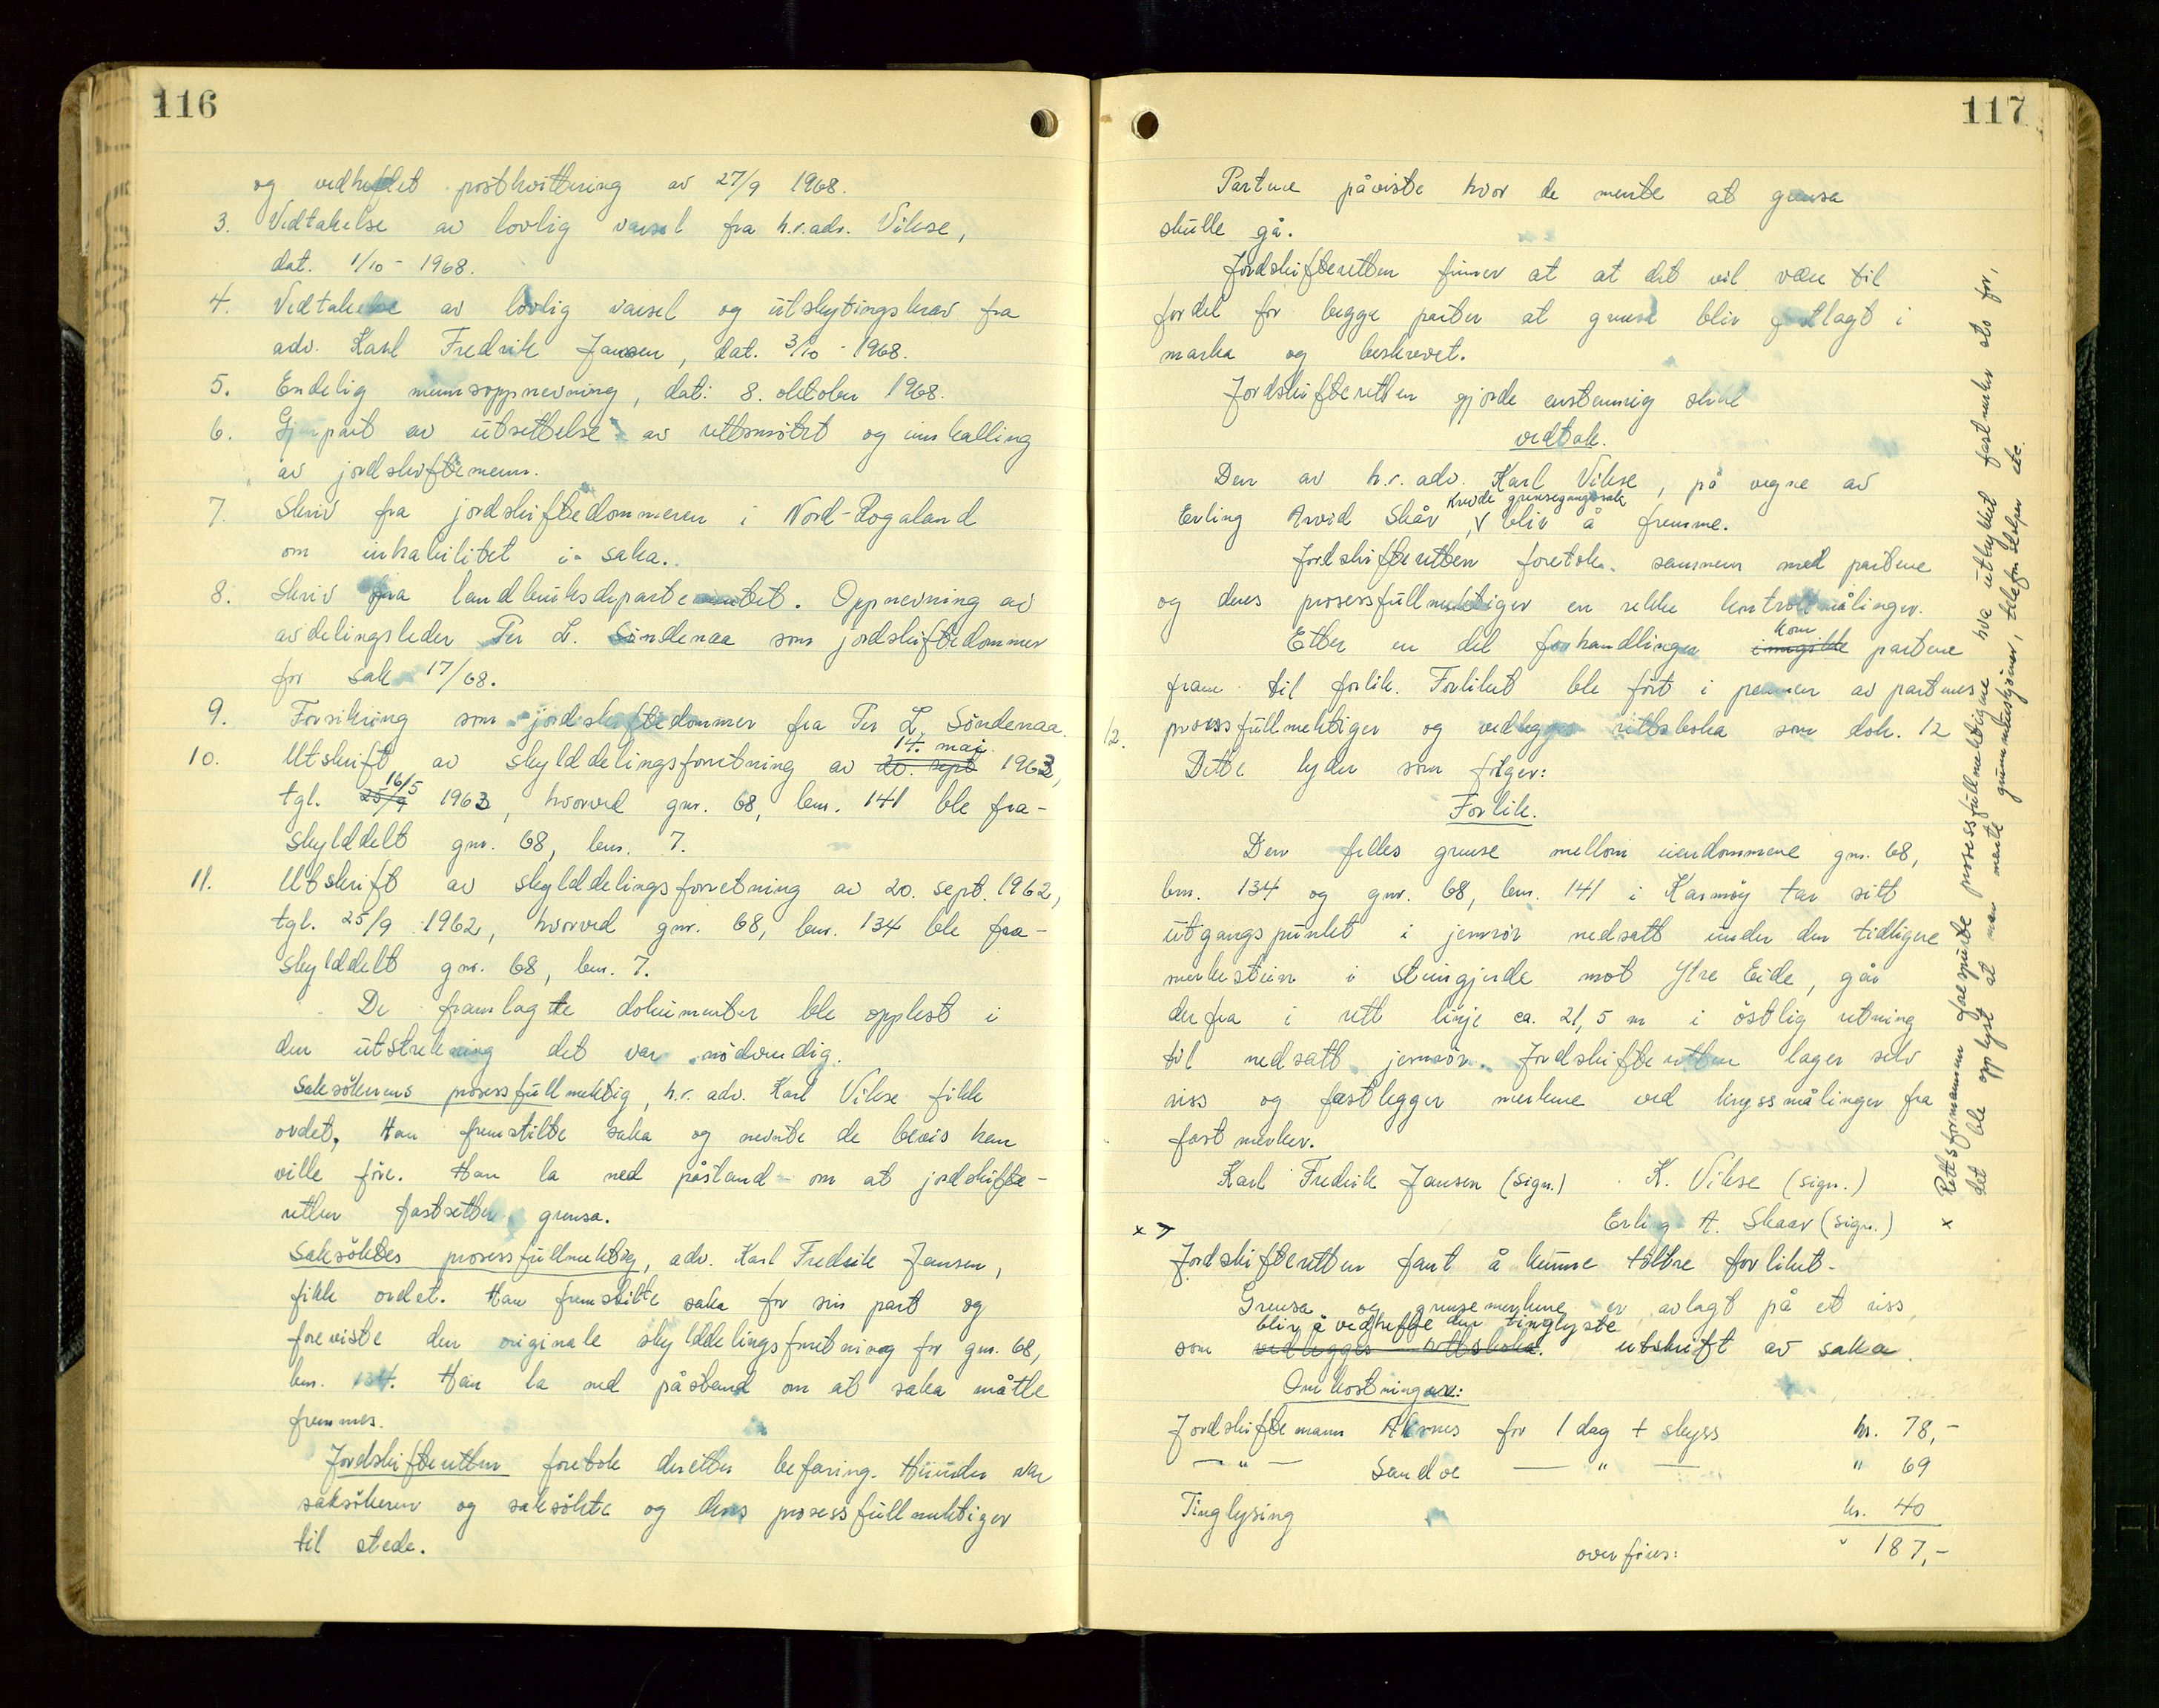 116
og vedheftet postkvittering av 27/9 1968.
3. Vedtakelse av lovlig varsel fra h.r.adv. Vikse,
dat. 1/10 - 1968.
4. Vedtakelse av lovlig varsel og utskytingskrav fra
adv. Karl Fredrik Jansen, dat. 3/10 - 1968.
5. Endelig mennsoppnevning, dat. 8. oktober 1968.
6. Gjenpart av utsettelse av rettsmötet og innkalling
av jordskiftemenn.
7. Skriv fra jordskiftedommeren i Nord-Rogaland
om inhabilitet i saka.
8. Skriv fra landbruksdepartementet. Oppnevning av
avdelingsleder Per L. Söndenaa som jordskiftedommer
for sak 17/68.
9. Forsikring som jordskiftedommer fra Per L. Söndenaa.
14. maj
10. Utskrift av skylddelingsforretning av 20. sept 1963,
16/5
tgl. 25/9 1963, hvorved gnr. 68, bnr. 141 ble fra-
skylddelt gnr. 68, bnr. 7.
11. Utskrift av skylddelingsforretning av 20. sept. 1962,
tgl. 25/9 1962, hvorved gnr. 68, bnr. 134 ble fra-
skylddelt gnr. 68, bnr. 7.
De framlagte dokumenter ble opplest i
den utstrekning det var nödvendig.
Saksökerens prosessfullmektig, h.r. adv. Karl Vikse fikk
ordet. Han fremstilte saka og nevnte de bevis han
ville före. Han la ned påstand om at jordskifte-
retten fastsetter grensa.
Saksöktes prosessfullmektig, adv. Karl Fredrik Jansen,
fikk ordet. Han fremstilte saka for sin part og
foreviste den originale skylddelingsforretning for gnr. 68,
bnr. 134. Han la ned påstand om at saka måtte
fremmes.
Jordskifteretten foretok deretter befaring. Herunder var
saksökeren og saksökte og deres prosessfullmektiger
til stede.
117
Partene påviste hvor de mente at grensa
skulle gå.
Jordskifteretten finner at at det vil være til
fordel for begge parter at grensa blir fastlagt i
marka og beskrevet.
Jordskifteretten gjorde enstemmig slikt
vedtak.
Den av h.r. adv. Karl Vikse, på vegne av
krevde grensegangssak
Erling Arvid Skår, v blir å fremme.
Jordskifteretten foretok sammen med partene
og deres prosessfullmektiger en rekke kontrollmålinger.
kom
Etter en del forhandlinger inngikk partene
fram til forlik. Forliket ble fört i pennen av partenes
12. prosessfullmektiger og vedlegges rettsboka som dok. 12
Dette lyder som fölger:
Forlik.
Den felles grense mellom eiendommene gnr. 68,
bnr. 134 og gnr. 68, bnr. 141 i Karmöy tar sitt
utgangspunkt i jernrör nedsatt under den tidligere
merkestein i steingjerde mot Ytre Eide, går
derfra i rett linje ca. 21,5 m i östlig retning
til nedsatt jernrör. Jordskifteretten lager selv
riss og fastlegger merkene ved kryssmålinger fra
fastmerker.
Karl Fredrik Jansen (sign.) K. Vikse (sign.)
Erling A. Skaar (sign.)
x >
Jordskifteretten fant å kunne tiltre forliket.
Grensa og grensemerkene er avlagt på et riss
blir å vedhefte den tinglyste
som vedlegges rettsboka. utskrift av saka.
Omkostninger:
Jordskiftemann Aksnes for 1 dag + skyss kr. 78,-
— " — Sandve — " — " 69
Tinglysing kr. 40
overföres: " 187,-
x Rettsformannen forespurte prosessfullmektigene hva uttrykket fastmerker sto for,
det ble opplyst at man mente grunnmurshjörner, telefonstolper etc.